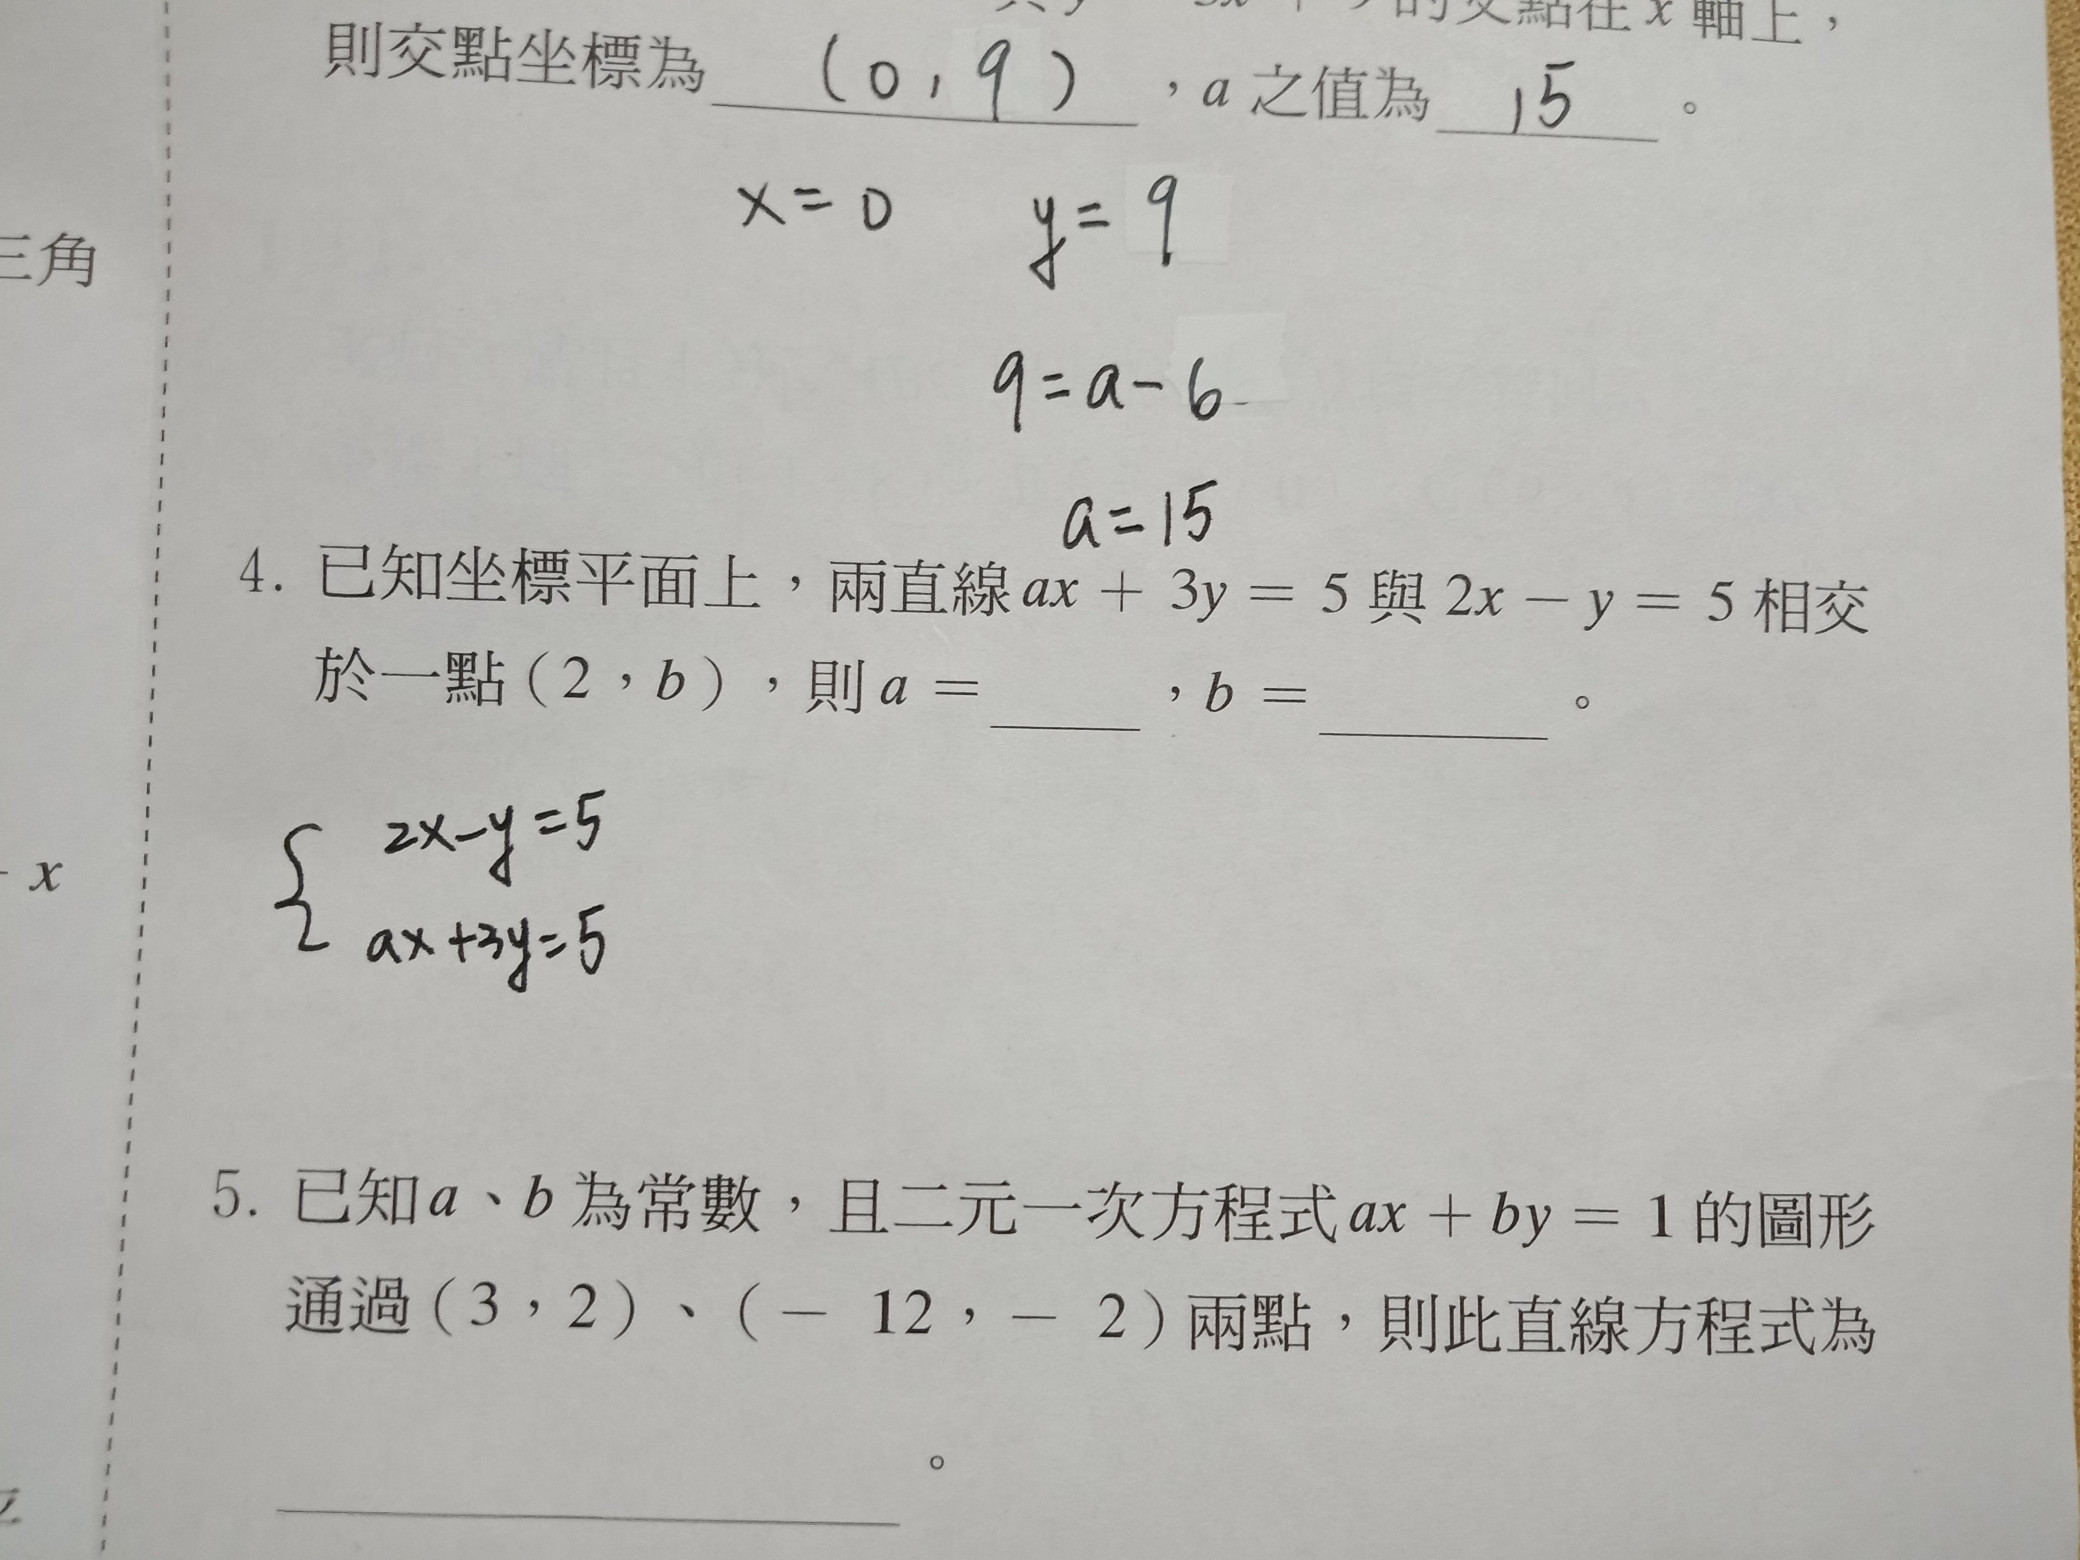 的交點在 x 軸上，
則交點坐標為 (0,9) ，a 之值為 15 。
x=0 y=9
三角
9=a-6
a=15
4. 已知坐標平面上，兩直線 ax + 3y = 5 與 2x − y = 5 相交
於一點（2，b），則 a = ____ ，b = ____ 。
2x-y=5
x
ax+3y=5
5. 已知 a、b 為常數，且二元一次方程式 ax + by = 1 的圖形
通過（3，2）、（− 12，− 2）兩點，則此直線方程式為
____ 。